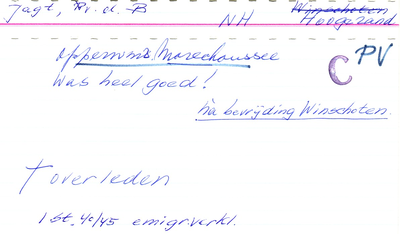 Jagt, Pr. d. B Winschoten
NH Hoogezand
opperwm. Marechaussee
C PV
Was heel goed!
na bevrijding Winschoten.
† overleden
1 St. 40/45 emigr.verkl.